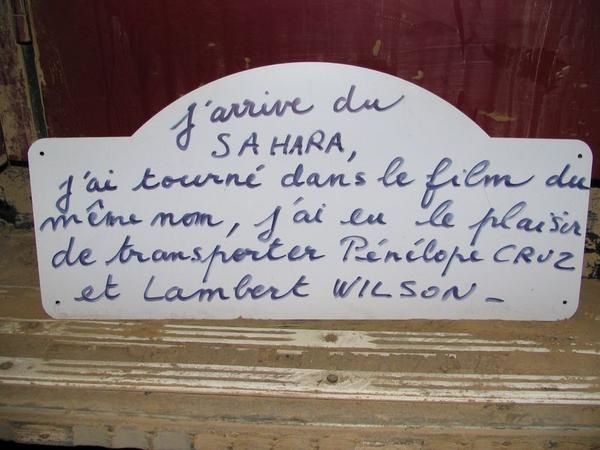 j'arrive du
SAHARA,
j'ai tourné dans le film du
même nom, j'ai eu le plaisir
de transporter Pénélope CRUZ
et Lambert WILSON_